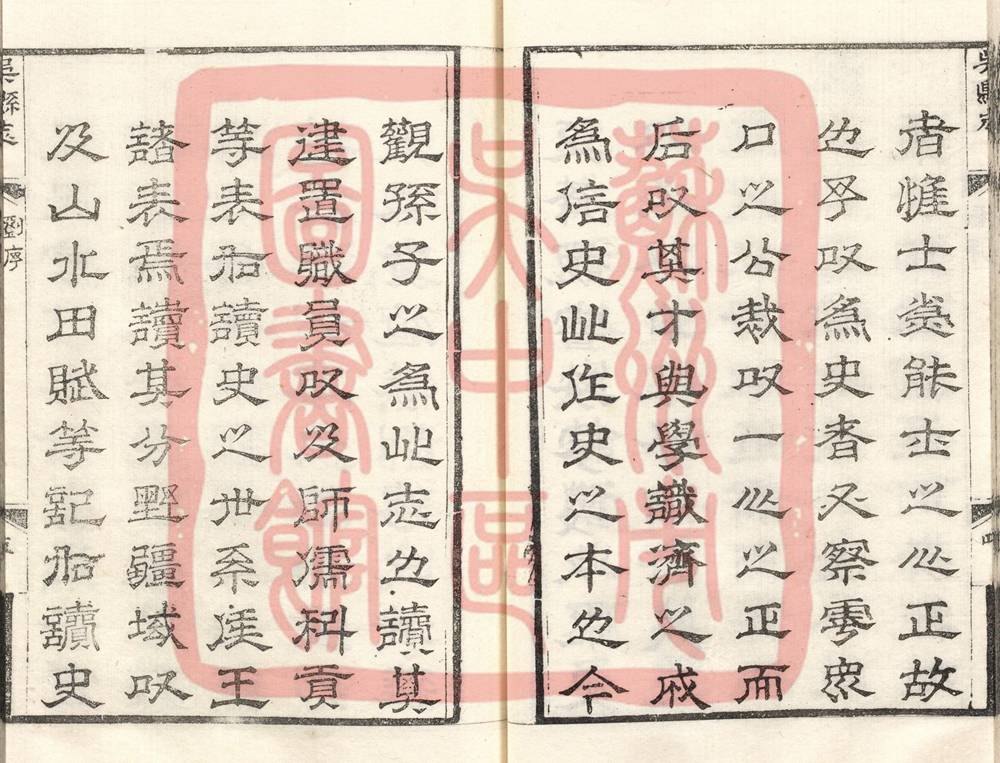 吳縣志
四
者惟士爲能士之心正故
也予以爲史者又察雩衆
口之公裁以一心之正而
后以其才與學識濟之成
爲信史此作史之本也今
觀孫子之爲此志也讀其
建置職員以及師儒科貢
等表如讀史之世系侯王
諸表焉讀其分野疆域以
及山水田賦等記如讀史
吳縣志
劉序
五
蘇州市
吳中區
圖書館